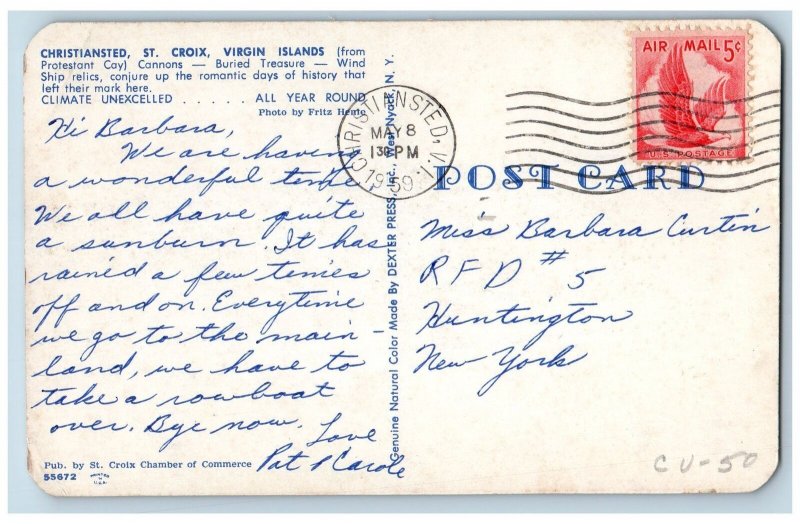 CHRISTIANSTED, ST. CROIX, VIRGIN ISLANDS (from
Protestant Cay) Cannons — Buried Treasure — Wind
Ship relics, conjure up the romantic days of history that
left their mark here.
CLIMATE UNEXCELLED . . . . . . ALL YEAR ROUND
Photo by Fritz Henle
Hi Barbara,
We are having
a wonderful time
We all have quite
a sunburn. It has
rained a few times
off and on. Everytime
we go to the main-
land, we have to
take a rowboat
over. Bye now.
Love
Pat & Carole
Pub. by St. Croix Chamber of Commerce
55672
Genuine Natural Color Made By DEXTER PRESS, Inc., West Nyack, N. Y.
CHRISTIANSTED, V.I.
MAY 8
130 PM
1959
AIR MAIL 5¢
U.S. POSTAGE
POST CARD
Miss Barbara Curtin
RFD # 5
Huntington
New York
CU-50